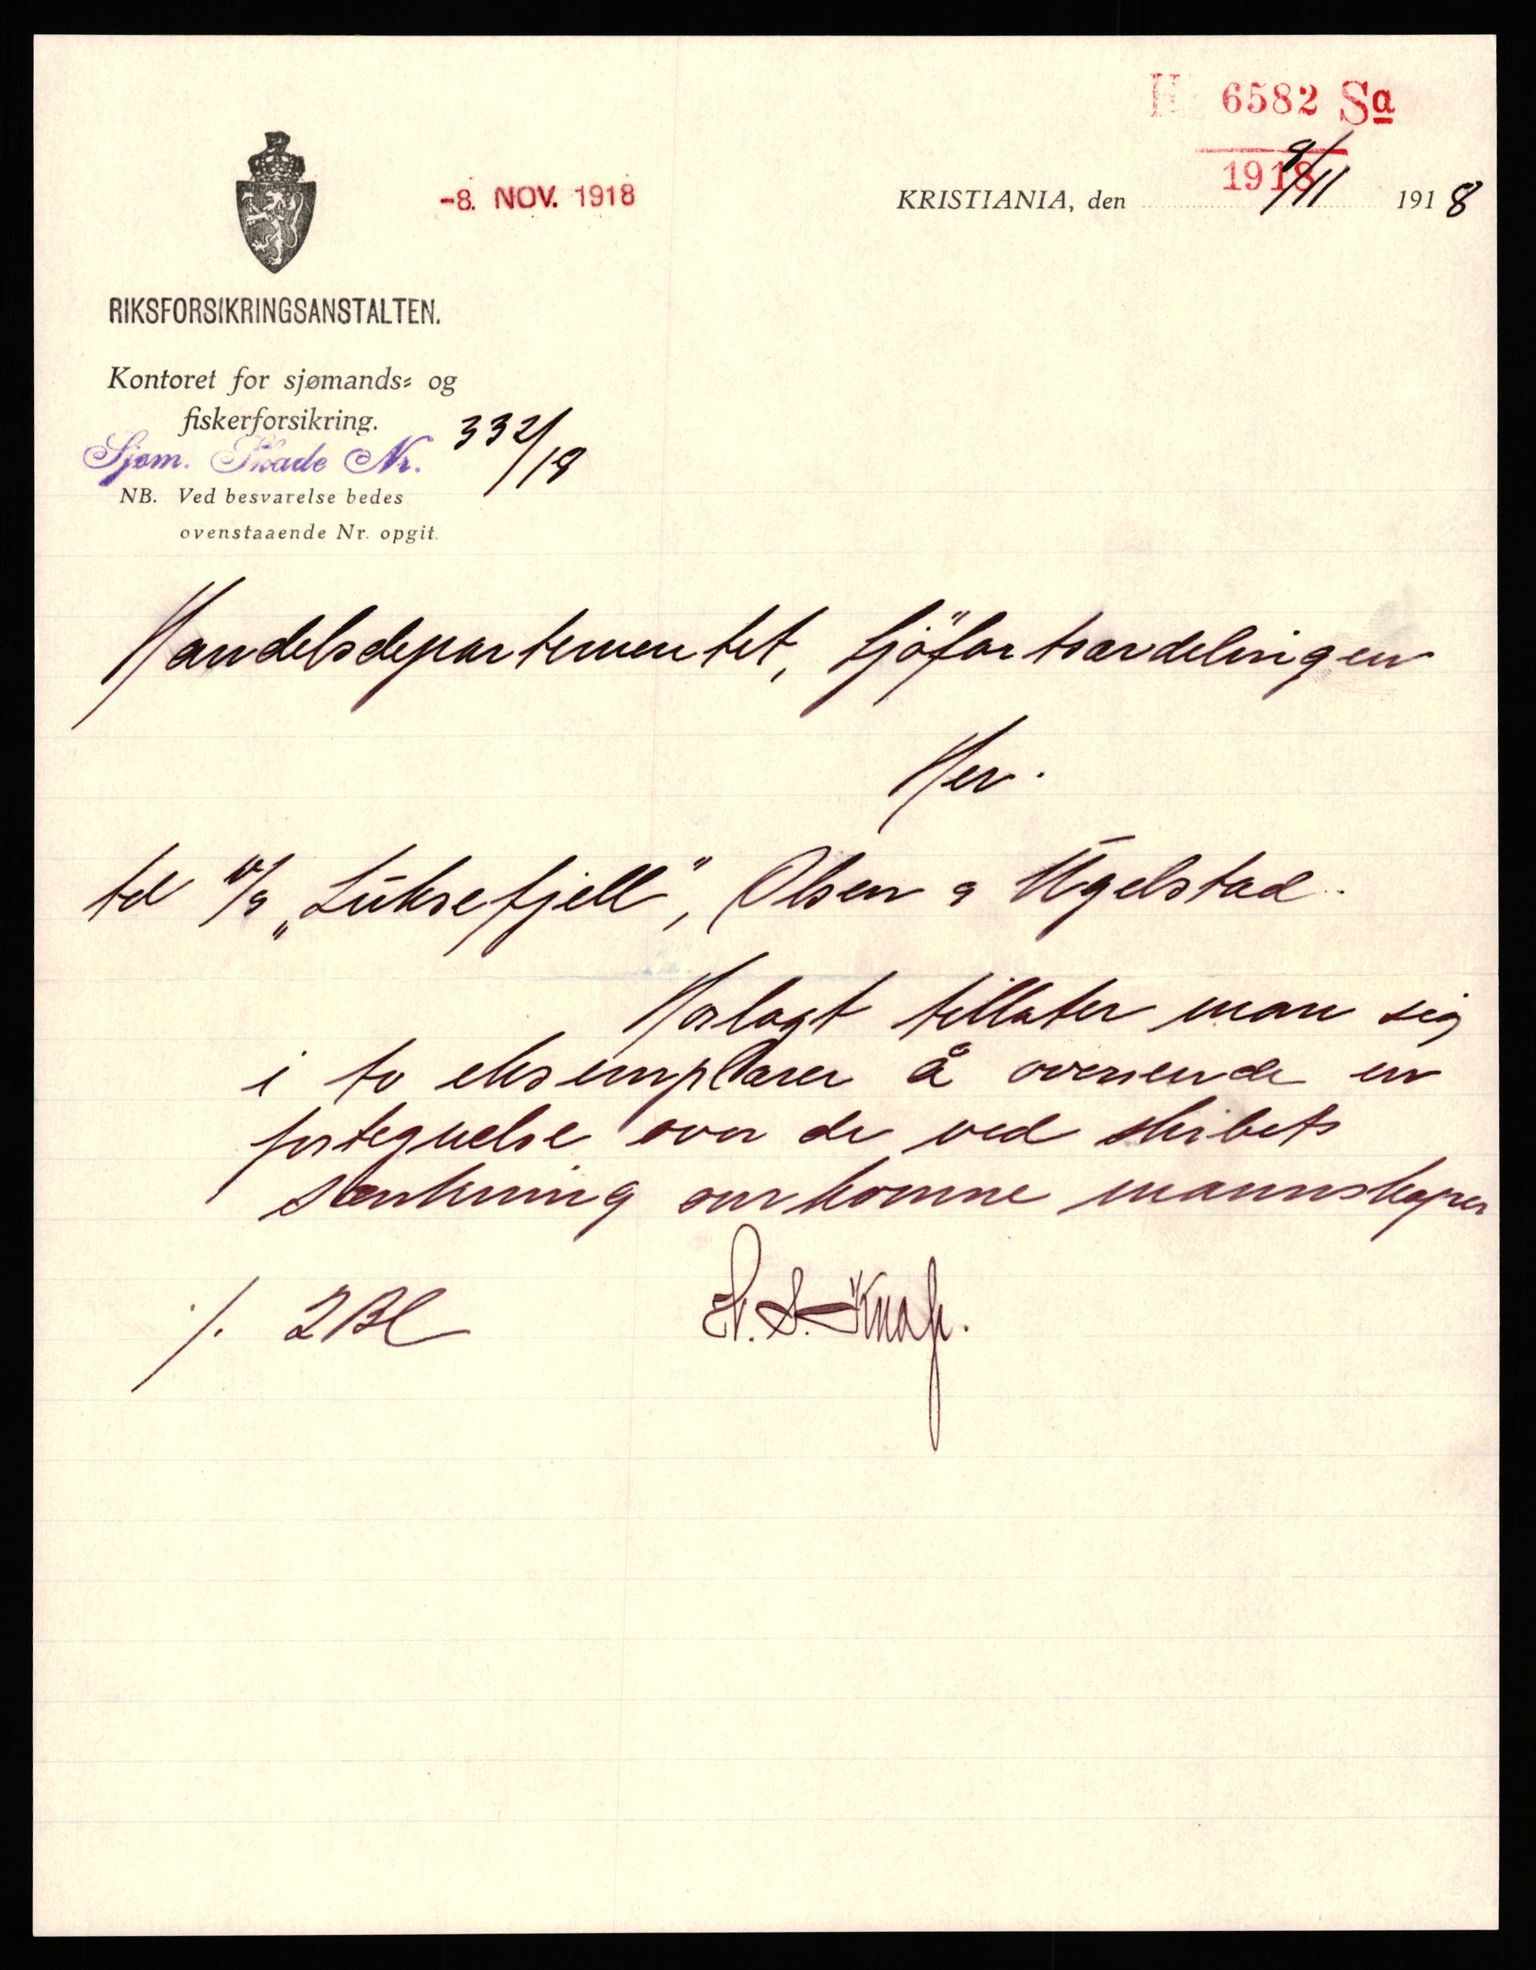 H 6582 Sa
1918
-8. NOV. 1918
KRISTIANIA, den 8/11 1918
RIKSFORSIKRINGSANSTALTEN.
Kontoret for sjømands- og
fiskerforsikring.
Sjøm. Skade Nr. 332/18
NB. Ved besvarelse bedes
ovenstaaende Nr. opgit.
Handelsdepartementet, Sjöfartsavdelingen
Her.
td "/s „Luksefjell", Olsen & Ugelstad.
Horlagt tillater man sig
i to eksemplarer å oversende en
fortegnelse over de ved skibets
sænkning omkomne mannskaper
./. 2 Bl
S. Knap.